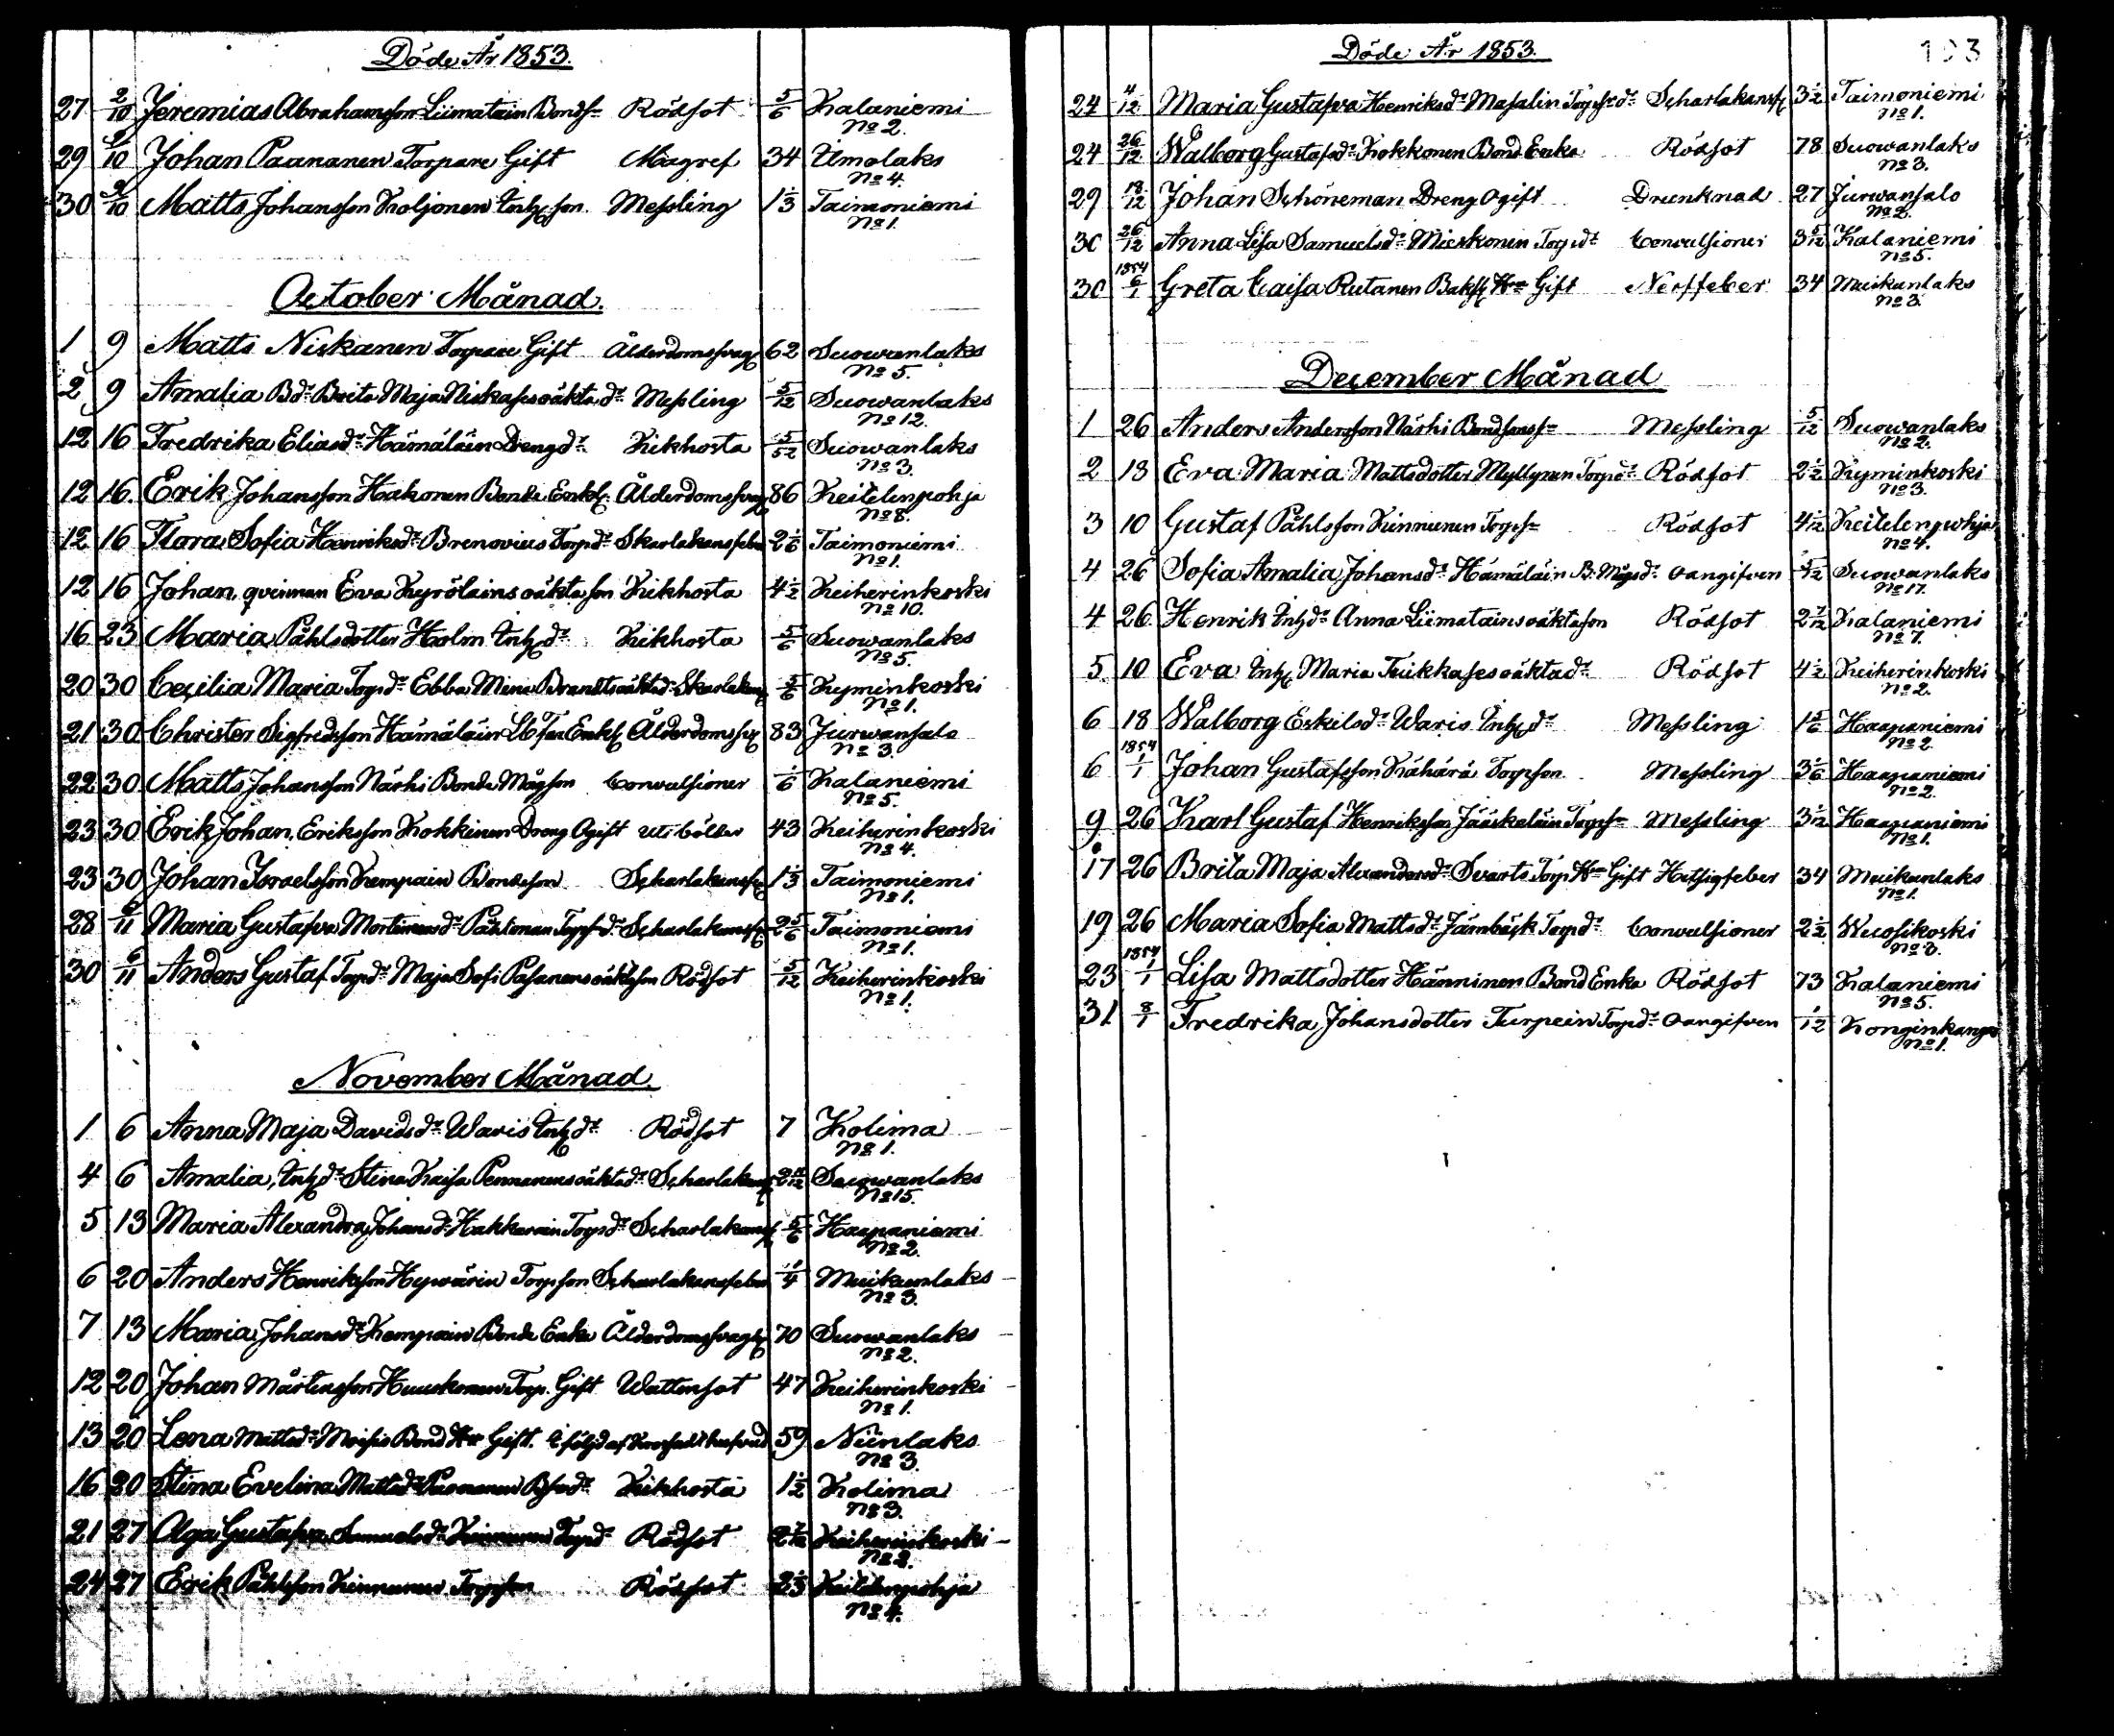 Döde År 1853.
27 2/10 Jeremias Abrahamsson Liimatain Bonds. Rödsot 5/6 Kalaniemi
No 2.
29 9/10 Johan Paananen Torpare Gift Magref 34 Umolaks
No 4.
30 9/10 Matts Johansson Koljonen Inh. son Messling 1 1/3 Taimoniemi
No 1.
October Månad.
1 9 Matts Niskanen Torpare Gift Ålderdomssvagh 62 Suowanlaks
No 5.
2 9 Amalia Bd. Brita Maja Niskases oäkta dr Messling 5/12 Suowanlaks
No 12.
12 16 Fredrika Eliasdr Hämäläin Drengdr Kikhosta 5/52 Suowanlaks
No 3.
12 16. Erik Johansson Hakonen Bonde Enkl. Ålderdomssvagh 86 Keitelenpohja
No 8.
12 16 Flora Sofia Henriksdr Brenovius Torpdr Skarlakansfeber 2 1/6 Taimoniemi
No 1.
12 16 Johan, qvinnan Eva Kyrölains oäkta son Kikhosta 4 1/2 Keiherinkoski
No 10.
16 23 Maria Påhlsdotter Holm Inh. dr Kikhosta 5/6 Suowanlaks
No 5.
20 30 Cecilia Maria Torpdr Ebba Mina Brandts oäktadr Skarlakansf 5/6 Kyminkoski
No 1.
21 30 Christer Sigfridsson Hämäläin Enkl Ålderdomssv 83 Jurwansalo
No 3.
22 30 Matts Johansson Närhi Bonde Mågson Convulsioner 1/6 Kalaniemi
No 5.
23 30 Erik Johan Eriksson Kokkinen Dreng Ogift 43 Keiherinkoski
No 4.
23 30 Johan Israelsson Kempain Bondeson Scharlakansf 1 1/3 Taimoniemi
No 1.
28 6/11 Maria Gustafva Mortensdr Påhlman Torpdr Scharlakansf 2 5/6 Taimoniemi
No 1.
30 6/11 Anders Gustaf Torpdr Maja Sofi Pasanens oäktason Rödsot 5/12 Keiherinkoski
No 1.
November Månad.
1 6 Anna Maja Davidsdr Waris Inh dr Rödsot 7 Kolima
No 1.
4 6 Amalia, Inh. dr Stina Kaisa Pennanens oäktadr Scharlakansf Suowanlaks
No 15.
5 13 Maria Alexandra Johansdr Hakkarain Torpdr Scharlakansf 5/6 Haapaniemi
No 2.
6 20 Anders Henriksson Hywärin Torpson Scharlakansfeber 1/4 Muikunlaks
No 3.
7 13 Maria Johansdr Kempain Bonde Enka Ålderdomssvagh 70 Suowanlaks
No 2.
12 20 Johan Mårtensson Huuskonen Torp. Gift Wattensot 47 Keiherinkoski
No 1.
13 20 Lena Mattsdr Moisio Bond Hu Gift. I följd af hufvud 59 Niinlaks
No 3.
16 20 Stina Evelina Mattsdr Paananen Kikhosta 1 1/2 Kolima
No 3.
21 27 Olga Gustafva Samuelsdr Kinnunen Torpdr Rödsot Keiherinkoski
No 2.
24 27 Erik Påhlsson Kinnunen Torpson Rödsot 2 1/3 Keitelenpohja
No 4.
Döde År 1853.
103
24 4/12 Maria Gustafva Henriksdr Masalin Torpdr Scharlakansf 3 1/2 Taimoniemi
No 1.
24 26/12 Walborg Gustafsdr Kokkonen Bond Enka Rödsot 78 Suowanlaks
No 3.
29 18/12 Johan Schöneman Dreng Ogift Drunknad 27 Jurwansalo
No 2.
30 26/12 Anna Lisa Samuelsdr Mieskonen Torpdr Convulsioner Kalaniemi
No 5.
30 1854 6/1 Greta Caisa Rutanen Hu Gift Nerffeber 34 Muikunlaks
No 3.
December Månad
1 26 Anders Andersson Närhi Messling 5/12 Suowanlaks
No 2.
2 18 Eva Maria Mattsdotter Myllynen Torpdr Rödsot 2 1/2 Kyminkoski
No 3.
3 10 Gustaf Påhlsson Kinnunen Torps. Rödsot Keitelenpohja
No 4.
4 26 Sofia Amalia Johansdr Hämäläin B. Mågsdr oangifven Suowanlaks
No 17.
4 26 Henrik Inhdr Anna Liimatains oäktason Rödsot 2 7/12 Kalaniemi
No 7.
5 10 Eva Inh. Maria Tuikkases oäktadr Rödsot 4 1/2 Keiherinkoski
No 2.
6 18 Walborg Eskilsdr Waris Inh dr Messling 1 5/6 Haapaniemi
No 2
6 1854 1/1 Johan Gustafsson Kähärä Torpson Messling 3 1/6 Haapaniemi
No 2.
9 26 Karl Gustaf Henriksson Jääskeläin Torps. Messling Haapaniemi
No 1.
17 26 Brita Maja Alexandersdr Svarts Torp. Hu Gift Hetsigfeber 34 Muikunlaks
No 1.
19 26 Maria Sofia Mattsdr Jämbäck Torpdr Convulsioner 2 1/2 Wuosikoski
No 3.
23 1854 1/1 Lisa Mattsdotter Hänninen Bond Enka Rödsot 73 Kalaniemi
No 5.
31 8/1 Fredrika Johansdotter Turpein Torpdr oangifven 1/12 Konginkangas
No 1.